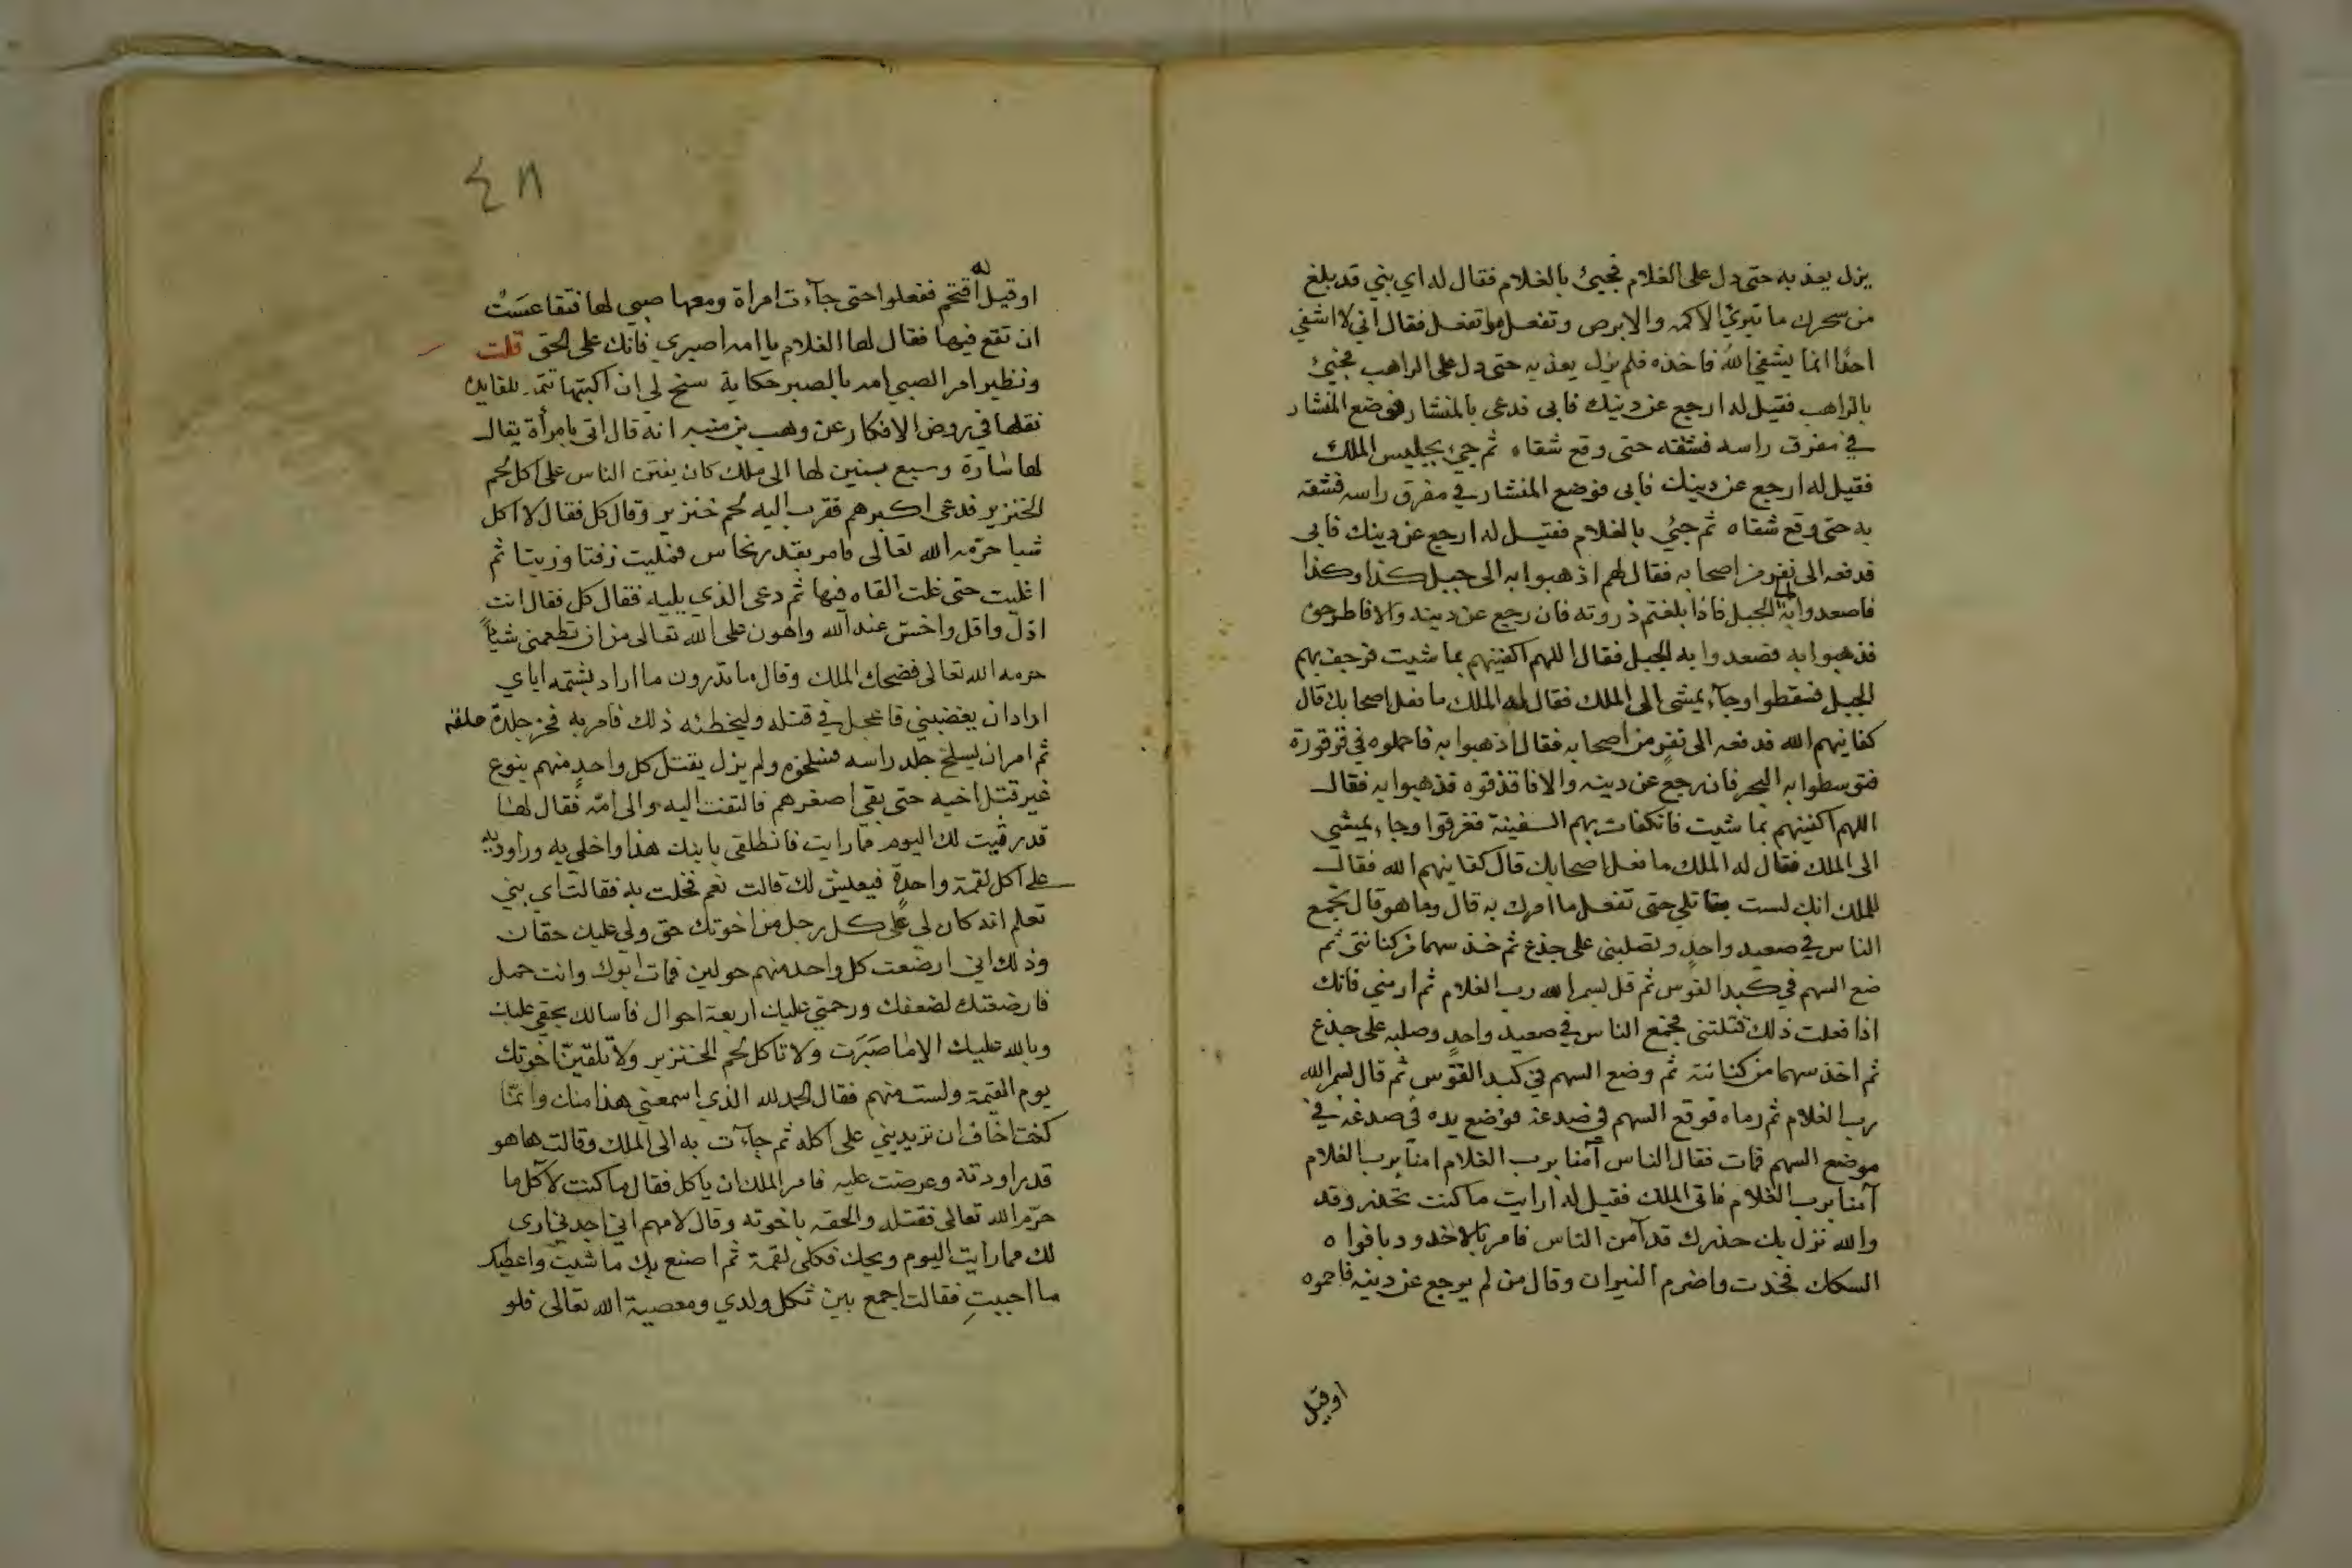 يزل يعذبه حتى دل على الغلام فجيئ بالغلام فقال له اي بني قد بلغ
من سحرك ما تبرئ الاكمه والابرص وتفعل وتفعل فقال اني لا اشفي
احدا انما يشفي الله فاخذه فلم يزل يعذبه حتى دل على الراهب فجيئ
بالراهب فقيل له ارجع عن دينك فابى فدعى بالمنشار فوضع المنشار
في مفرق راسه فشقه حتى وقع شقاه ثم جيئ بجليس الملك
فقيل له ارجع عن دينك فابى فوضع المنشار في مفرق راسه فشقه
به حتى وقع شقاه ثم جيئ بالغلام فقيل له ارجع عن دينك فابى
فدفعه الى نفر من اصحابه فقال لهم اذهبوا به الى جبل كذا وكذا
فاصعدوا به الجبل فاذا بلغتم ذروته فان رجع عن دينه والا فاطرحوه
فذهبوا به فصعدوا به الجبل فقال اللهم اكفنيهم بما شيت فرجف بهم
الجبل فسقطوا وجآء يمشي الى الملك فقال له الملك ما فعل اصحابك قال
كفانيهم الله فدفعه الى نفر من اصحابه فقال اذهبوا به فاحملوه في قرقورة
فتوسطوا به البحر فان رجع عن دينه والا فاقذفوه فذهبوا به فقال
اللهم اكفنيهم بما شيت فانكفات بهم السفينة فغرقوا وجاء يمشي
الى الملك فقال له الملك ما فعل اصحابك قال كفانيهم الله فقال
للملك انك لست بقاتلي حتى تفعل ما امرك به قال وما هو قال تجمع
الناس في صعيد واحد وتصلبني على جذع ثم خذ سهما من كنانتي ثم
ضع السهم في كبد القوس ثم قل بسم الله رب الغلام ثم ارمني فانك
اذا فعلت ذلك قتلتني فجمع الناس في صعيد واحد وصلبه على جذع
ثم اخذ سهما من كنانته ثم وضع السهم في كبد القوس ثم قال بسم الله
رب الغلام ثم رماه فوقع السهم في صدغه فوضع يده في صدغه في
موضع السهم فمات فقال الناس آمنا برب الغلام امنا برب الغلام
آمنا برب الغلام فاتى الملك فقيل له ارايت ما كنت تحذر وقد
والله نزل بك حذرك قد آمن الناس فامر بالاخدود بافواه
السكك فخدت واضرم النيران وقال من لم يرجع عن دينه فاحموه
اوقيل
٤٨
اوقيل له اقتحم ففعلوا حتى جآءت امراة ومعها صبي لها فتقاعست
ان تقع فيها فقال لها الغلام يا امه اصبري فانك على الحق قلت
ونظير امر الصبي امه بالصبر حكاية سنح لي ان اكتبها
نقلها في روض الافكار عن وهب بن منبه انه قال اتى بامرأة يقال
لها سارة وسبع بنين لها الى ملك كان يفتن الناس على اكل لحم
الخنزير فدعى اكبرهم فقرب اليه لحم خنزير وقال كل فقال لا اكل
شيا حرمه الله تعالى فامر بقدر نحاس فمليت زفتا وزيتا ثم
اغليت حتى غلت القاه فيها ثم دعى الذي يليه فقال كل فقال انت
اذل واقل واخس عند الله واهون على الله تعالى من ان تطعمني شيأ
حرمه الله تعالى فضحك الملك وقال ما تدرون ما اراد بشتمه اياي
اراد ان يغضبني فاعجل في قتله وليخطئه ذلك فامر به فحز جلدة
ثم امر ان يسلخ جلد راسه فسلخوه ولم يزل يقتل كل واحد منهم بنوع
غير قتل اخيه حتى بقي اصغرهم فالتفت اليه والى امه فقال لها
قد رقيت لك اليوم مما رايت فانطلقي بابنك هذا واخلي به وراوديه
على اكل لقمة واحدة فيعيش لك قالت نعم فخلت به فقالت اي بني
تعلم انه كان لي على كل رجل من اخوتك حق ولي عليك حقان
وذلك اني ارضعت كل واحد منهم حولين فمات ابوك وانت حمل
فارضعتك لضعفك ورحمتي عليك اربعة احوال فاسالك بحقي عليك
وبالله عليك الا ما صبرت ولا تاكل لحم الخنزير ولا تلقين اخوتك
يوم القيمة ولست منهم فقال الحمد لله الذي اسمعني هذا منك وانما
كنت اخاف ان تريديني على اكله ثم جآءت به الى الملك وقالت ها هو
قد راودته وعرضت عليه فامر الملك ان ياكل فقال ما كنت لآكل ما
حرم الله تعالى فقتله والحقه باخوته وقال لامهم اني اجدني ارى
لك مما رايت اليوم ويحك فكلي لقمة ثم اصنع بك ما شيت واعطيك
ما احببت فقالت اجمع بين ثكل ولدي ومعصية الله تعالى فلو